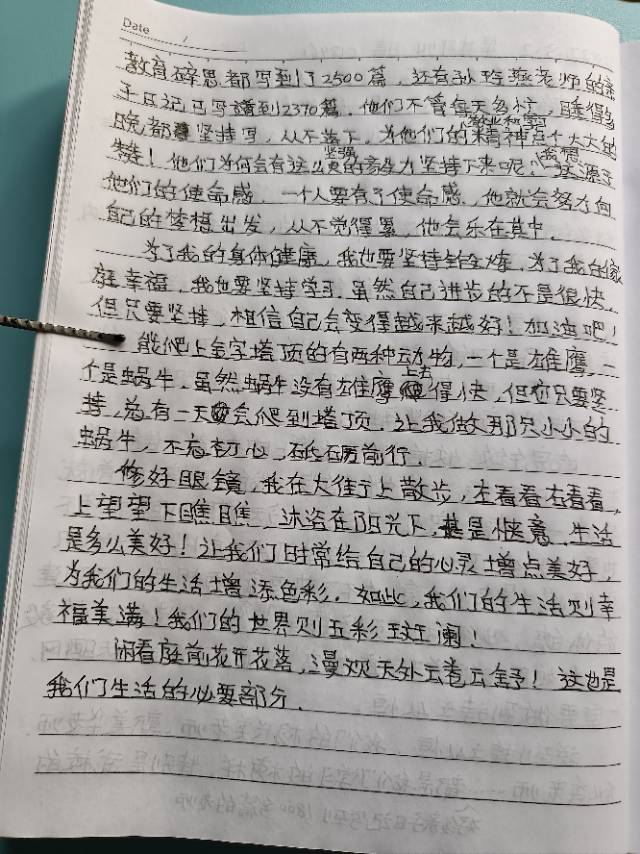 Date
教育碎思都写到了2500篇，还有孙玲燕老师的亲
子日记已写着到2370篇。他们不管每天多忙，睡得多
敬业和写
晚都坚持写，从不落下。为他们的精神点个大大的
坚强 我想
赞！他们为何会有这么的毅力坚持下来呢？这源于
他们的使命感。一个人要有了使命感，他就会努力向
自己的梦想出发，从不觉得累，他会乐在其中。
为了我的身体健康，我也要坚持锻炼，为了我的家
庭幸福，我也要坚持学习。虽然自己进步的不是很快，
但只要坚持，相信自己会变得越来越好！加油吧！
能爬上金字塔顶的有两种动物，一个是雄鹰，一
上去
个是蜗牛。虽然蜗牛没有雄鹰得快，但它只要坚
持，总有一天会爬到塔顶。让我做那只小小的
蜗牛，不忘初心，砥砺前行。
修好眼镜，我在大街上散步，左看看右看看，
上望望下瞧瞧，沐浴在阳光下，甚是惬意。生活
是多么美好！让我们时常给自己的心灵增点美好，
为我们的生活增添色彩。如此，我们的生活则幸
福美满！我们的世界则五彩斑斓！
闲看庭前花开花落，漫观天外云卷云舒！这也是
我们生活的必要部分。